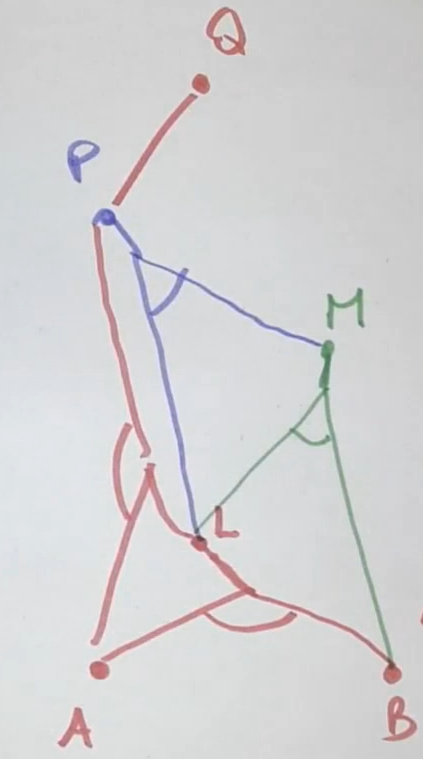 Q
P
M
L
A
B